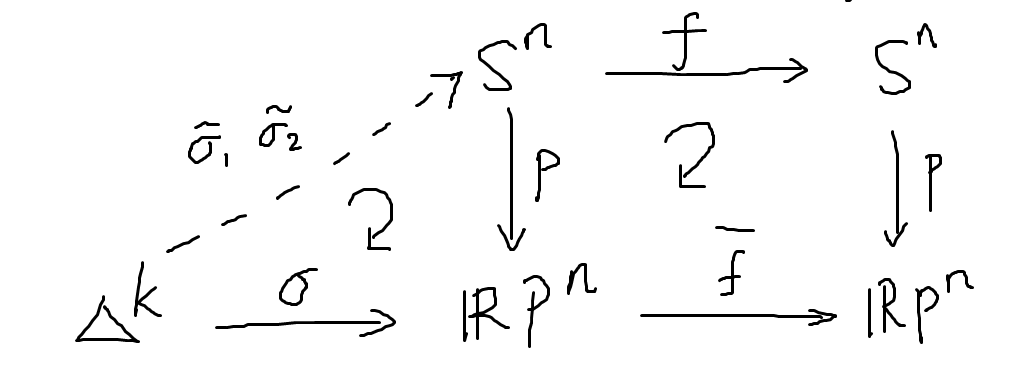 Sⁿ f Sⁿ
σ̃₁ σ̃₂
p p
f̅
Δᵏ σ ℝPⁿ ℝPⁿ